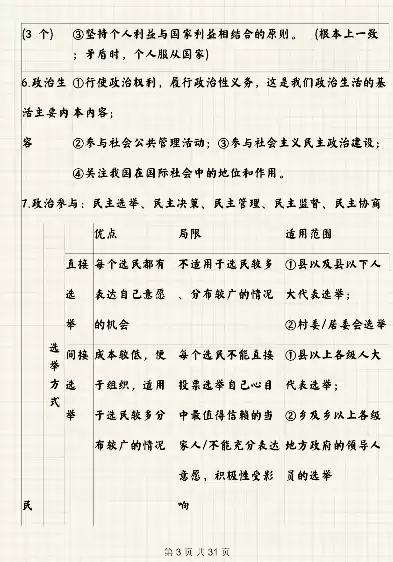 (3 个) ③坚持个人利益与国家利益相结合的原则。 (根本上一致
；矛盾时，个人服从国家)
6.政治生 ①行使政治权利，履行政治性义务，这是我们政治生活的基
活主要内 本内容；
容 ②参与社会公共管理活动；③参与社会主义民主政治建设；
④关注我国在国际社会中的地位和作用。
7.政治参与：民主选举、民主决策、民主管理、民主监督、民主协商
优点 局限 适用范围
直接 每个选民都有 不适用于选民较多 ①县以及县以下人
选 表达自己意愿 、分布较广的情况 大代表选举；
举 的机会 ②村委/居委会选举
选 间接 成本较低，便 每个选民不能直接 ①县以上各级人大
举 选 于组织，适用 投票选举自己心目 代表选举；
方 举 于选民较多分 中最值得信赖的当 ②乡及乡以上各级
式 布较广的情况 家人/不能充分表达 地方政府的领导人
意愿，积极性受影 员的选举
民 响
第 3 页 共 31 页